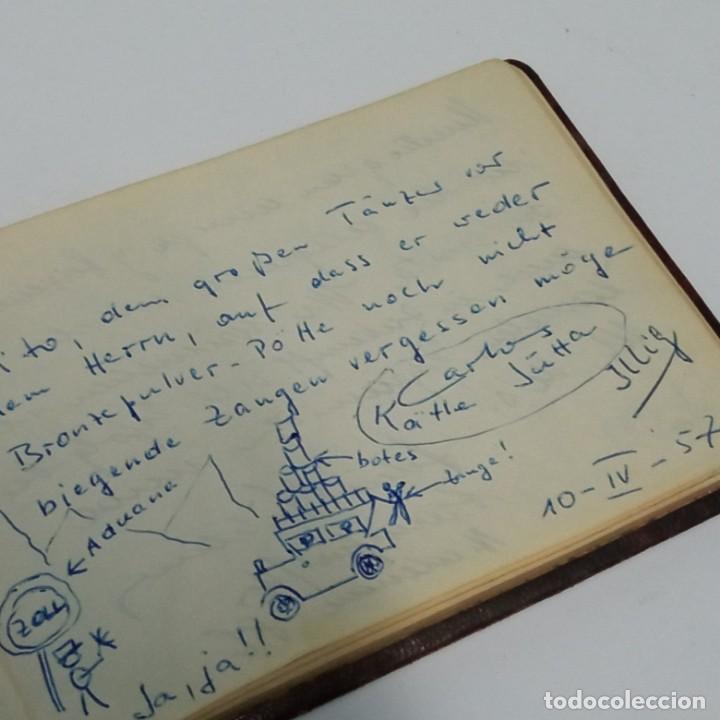 ito, dem großen Tänzer vor
dem Herrn, auf dass er weder
Bronzepulver-Pötte noch nicht
biegende Zangen vergessen möge
Carlos
Kätte Jutta
Illig
10-IV-57
botes
Aduana
ZOLL
Ja, ja!!
todocoleccion
todocoleccion.net